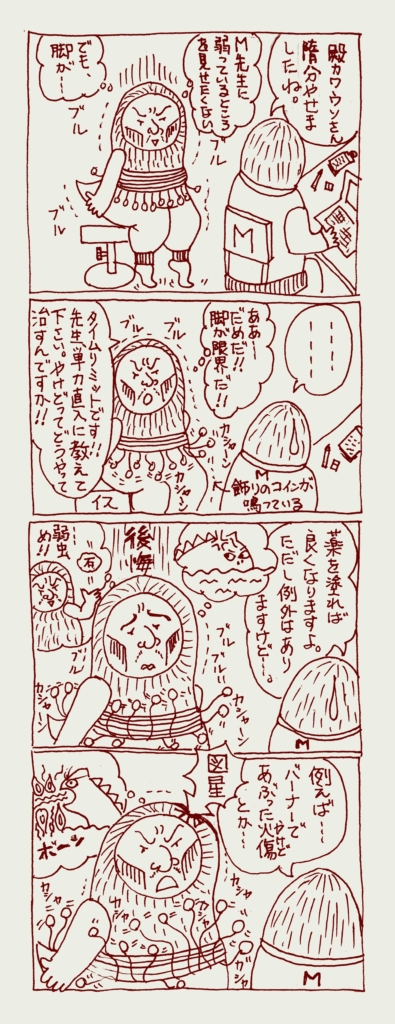 殿カワウソさん
随分やせま
したね。
M先生に
弱っているところ
を見せたくない
でも、
脚が…
ブル
ブル
ブル
ブル
M
…………
ああ〜
だめだ!!
脚が限界だ!!
ブル
ブル
タイムリミットです!!
先生、単刀直入に教えて
下さい。やけどってどうやって
治すんですか!!
カシャーン
カシャン
カシャン
イス
M
←飾りのコインが
鳴っている
薬を塗れば
良くなりますよ。
ただし例外はあり
ますけど…。
後悔
弱虫
め!!
右
ブル
ブル
ブル
カシャーン
カシャーン
M
例えば…
バーナーで
あぶった火傷
やけど
とか…
図星
ボーッ
カシャ
カシャ
カシャ
カシャ
カシャ
カシャ
M